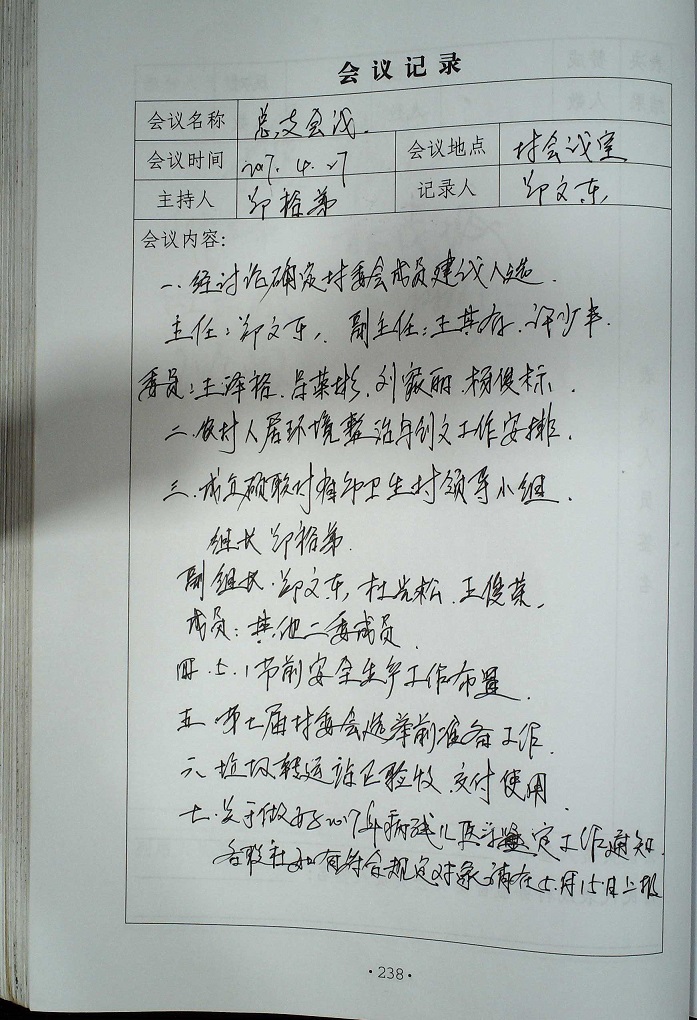 会议记录
会议名称 总支会议.
会议时间 2017.4.27 会议地点 村会议室
主持人 郑裕弟 记录人 郑文东
会议内容:
一.经讨论确定村委会成员建议人选.
主任:郑文东, 副主任:王其存.许少丰.
委员:王泽裕.吕荣彬.刘家丽.杨俊标.
二.农村人居环境整治与创文工作安排.
三.成立硕联村 卫生村领导小组.
组长 郑裕弟.
副组长.郑文东,杜岂松.王俊荣,
成员:其他二委成员.
四.5.1节前安全生产工作布置
五 第七届村委会选举前准备工作.
六.垃圾转运站已验收.交付使用.
七.关于做好2017年病残儿医学鉴定工作通知.
各联社如有符合规定对象请在5月15日上报
·238·